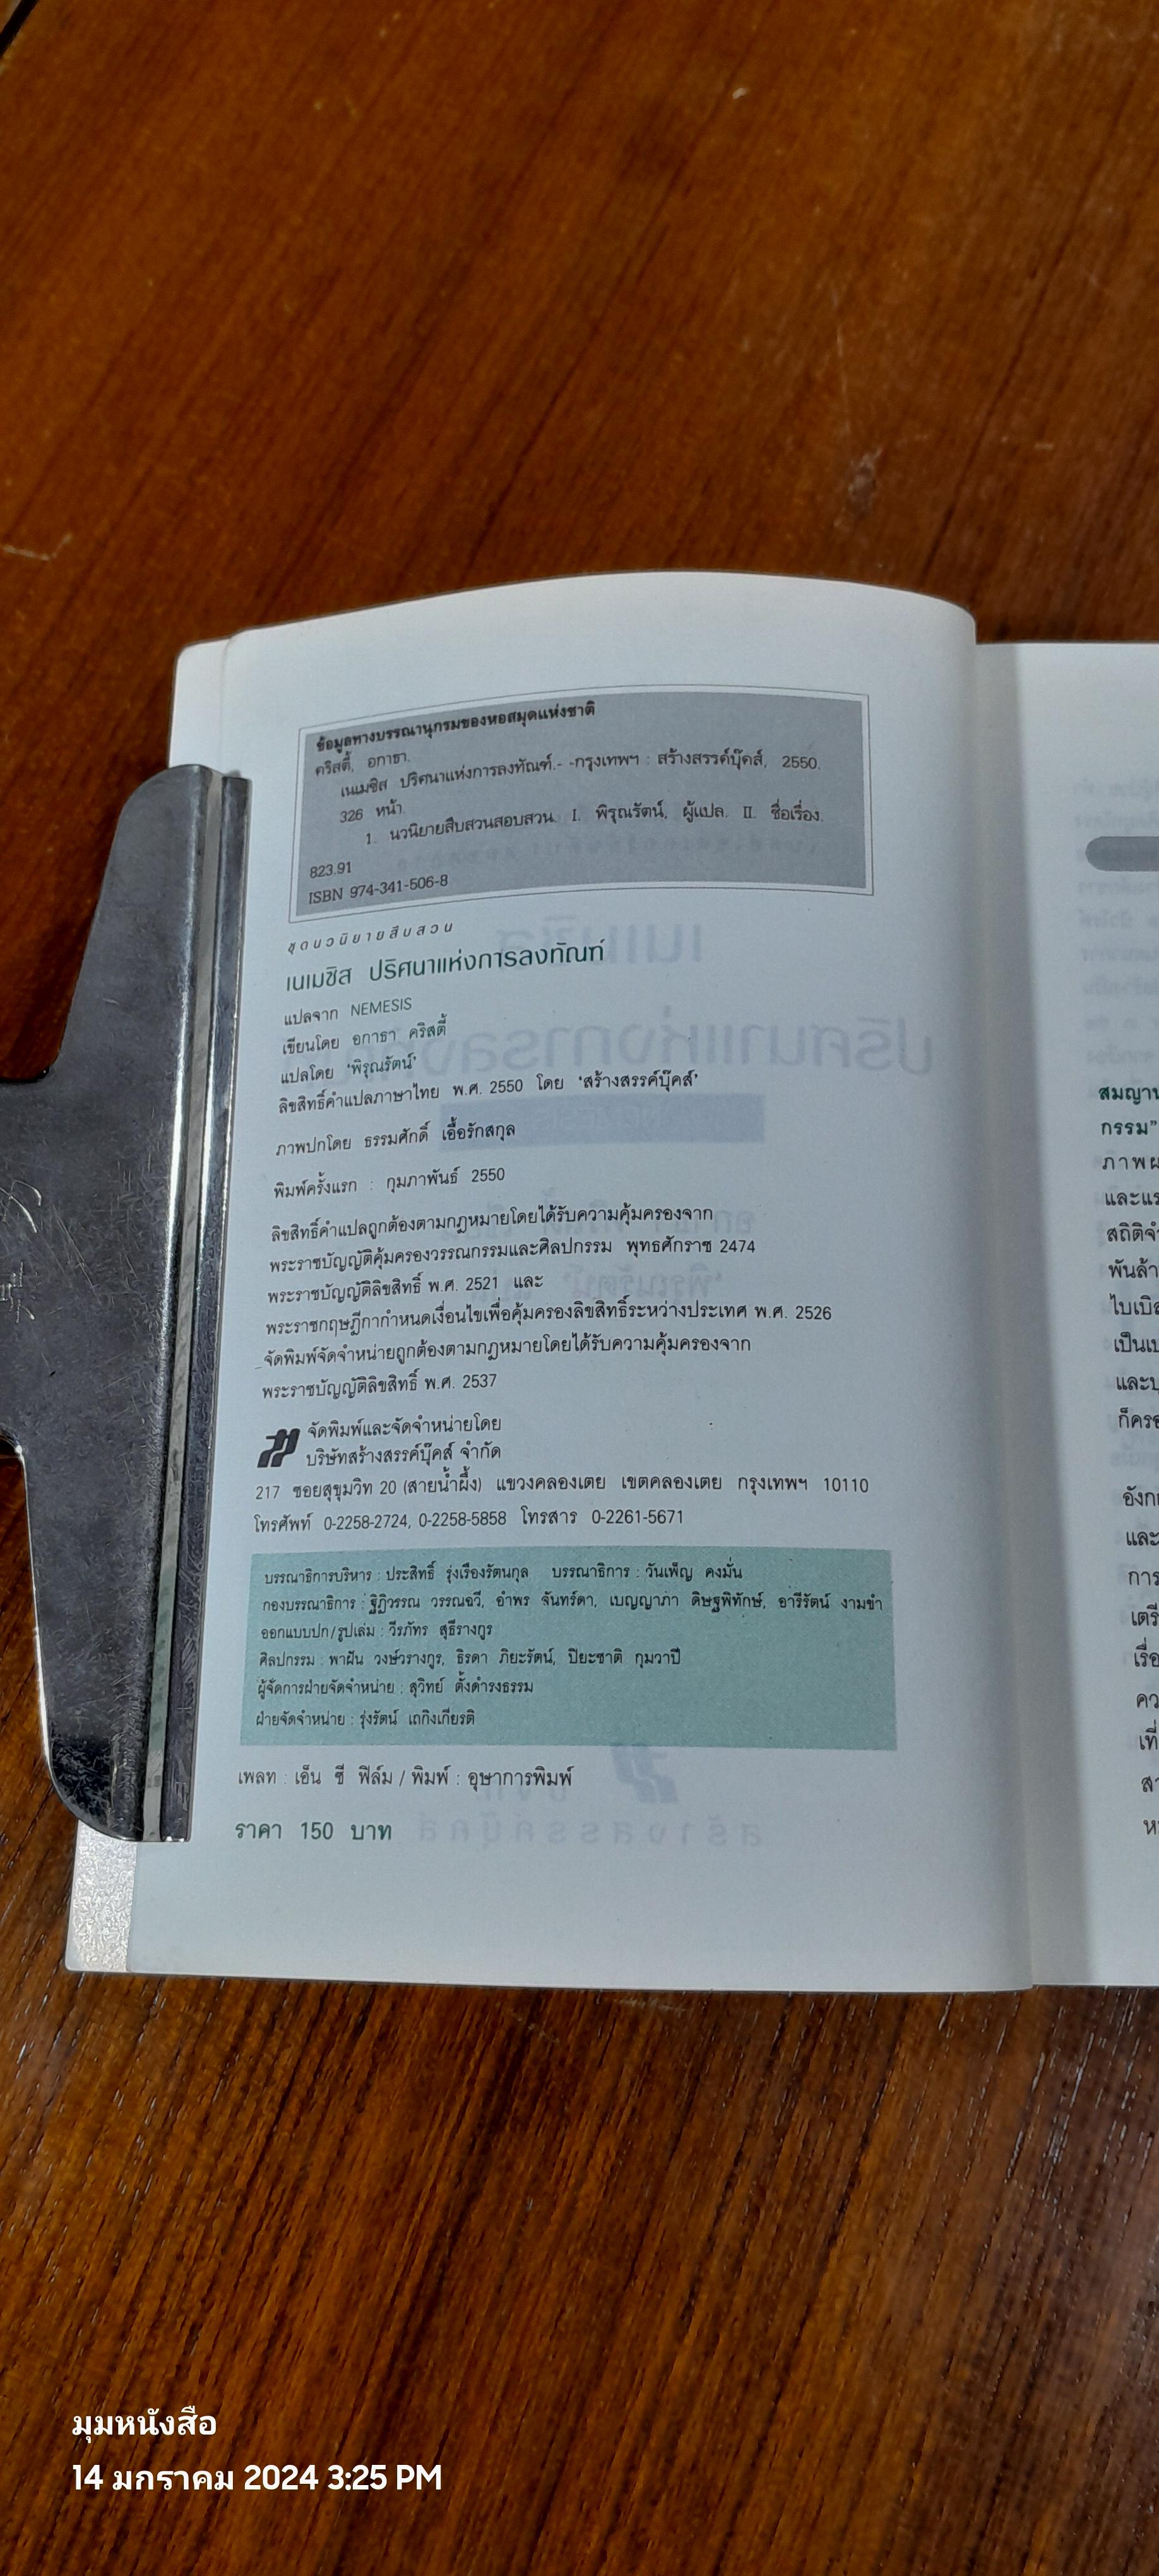 ข้อมูลทางบรรณานุกรมของหอสมุดแห่งชาติ
คริสตี้, อกาธา.
เนเมซิส ปริศนาแห่งการลงทัณฑ์.- -กรุงเทพฯ : สร้างสรรค์บุ๊คส์, 2550.
326 หน้า.
1. นวนิยายสืบสวนสอบสวน. I. พิรุณรัตน์, ผู้แปล. II. ชื่อเรื่อง.
823.91
ISBN 974-341-506-8
ชุดนวนิยายสืบสวน
เนเมซิส ปริศนาแห่งการลงทัณฑ์
แปลจาก NEMESIS
เขียนโดย อกาธา คริสตี้
แปลโดย ‘พิรุณรัตน์’
ลิขสิทธิ์คำแปลภาษาไทย พ.ศ. 2550 โดย ‘สร้างสรรค์บุ๊คส์’
ภาพปกโดย ธรรมศักดิ์ เอื้อรักสกุล
พิมพ์ครั้งแรก : กุมภาพันธ์ 2550
ลิขสิทธิ์คำแปลถูกต้องตามกฎหมายโดยได้รับความคุ้มครองจาก
พระราชบัญญัติคุ้มครองวรรณกรรมและศิลปกรรม พุทธศักราช 2474
พระราชบัญญัติลิขสิทธิ์ พ.ศ. 2521 และ
พระราชกฤษฎีกากำหนดเงื่อนไขเพื่อคุ้มครองลิขสิทธิ์ระหว่างประเทศ พ.ศ. 2526
จัดพิมพ์จัดจำหน่ายถูกต้องตามกฎหมายโดยได้รับความคุ้มครองจาก
พระราชบัญญัติลิขสิทธิ์ พ.ศ. 2537
จัดพิมพ์และจัดจำหน่ายโดย
บริษัทสร้างสรรค์บุ๊คส์ จำกัด
217 ซอยสุขุมวิท 20 (สายน้ำผึ้ง) แขวงคลองเตย เขตคลองเตย กรุงเทพฯ 10110
โทรศัพท์ 0-2258-2724, 0-2258-5858 โทรสาร 0-2261-5671
บรรณาธิการบริหาร : ประสิทธิ์ รุ่งเรืองรัตนกุล บรรณาธิการ : วันเพ็ญ คงมั่น
กองบรรณาธิการ : ฐิฏิวรรณ วรรณฉวี, อำพร จันทร์ดา, เบญญาภา ดิษฐพิทักษ์, อารีรัตน์ งามขำ
ออกแบบปก/รูปเล่ม : วีรภัทร สุธีรางกูร
ศิลปกรรม : พาฝัน วงษ์วรางกูร, ธิรดา ภิยะรัตน์, ปิยะชาติ กุมวาปี
ผู้จัดการฝ่ายจัดจำหน่าย : สุวิทย์ ตั้งดำรงธรรม
ฝ่ายจัดจำหน่าย : รุ่งรัตน์ เถกิงเกียรติ
เพลท : เอ็น ซี ฟิล์ม / พิมพ์ : อุษาการพิมพ์
ราคา 150 บาท
กรรม”
และ
มุมหนังสือ
14 มกราคม 2024 3:25 PM